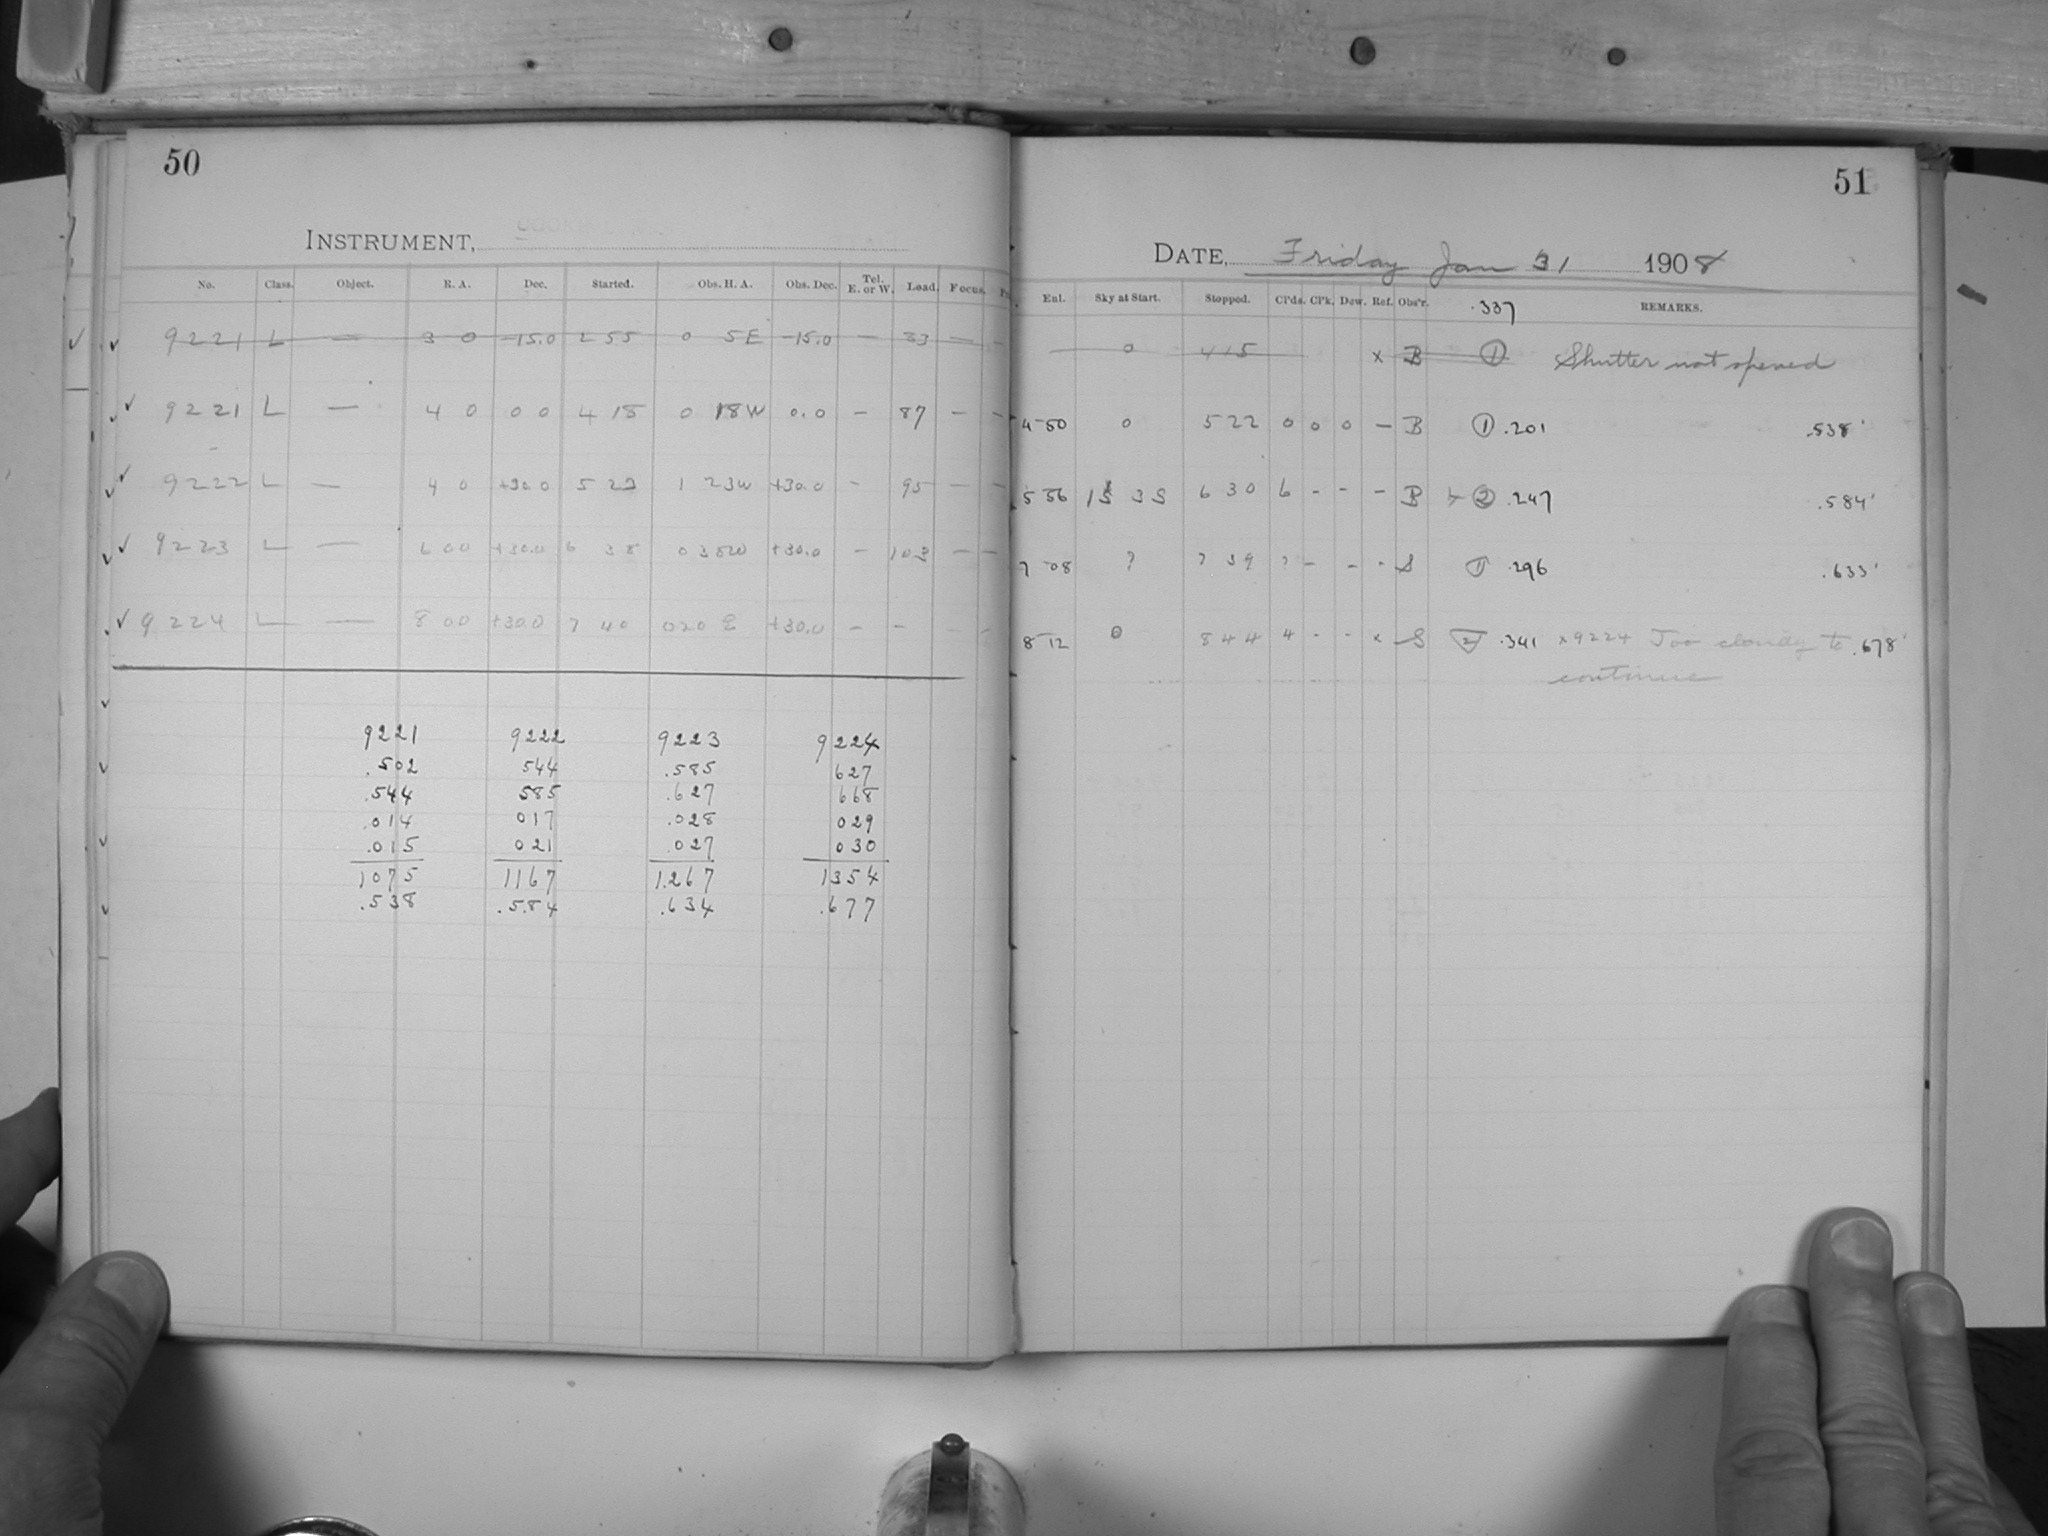 50
INSTRUMENT,
No. Class. Object. R. A. Dec. Started. Obs. H. A. Obs. Dec. Tel. E. or W. Load. Focus.
9221 L — 3 0 -15.0 2 55 0 5E -15.0 — 83 —
9221 L — 4 0 0 0 4 18 0 18W 0.0 — 87 — —
9222 L — 4 0 +30.0 5 23 1 23W +30.0 - 95 — —
9223 L — 6 00 +30.0 6 38 0 38W +30.0 — 103 — —
9224 L — 8 00 +30.0 7 40 020 E +30.0 — —
9221 9222 9223 9224
.502 544 .585 627
.544 585 .627 668
.014 017 .028 029
.015 021 .027 030
1075 1167 1.267 1354
.538 .584 .634 .677
51
DATE, Friday Jan 31 1908
Enl. Sky at Start. Stopped. Cl'ds. Cl'k. Dew. Ref. Obs'r. .337 REMARKS.
— 0 4 15 x B ① Shutter not opened
4 50 0 5 22 0 0 0 — B ① .201 .538'
5 56 6 30 6 - - - B ② .247 .584'
7 08 ? 7 39 ? - - - S ① .296 .633'
8 12 0 8 44 4 - - x S 2 .341 x9224 Too cloudy to .678'
continue